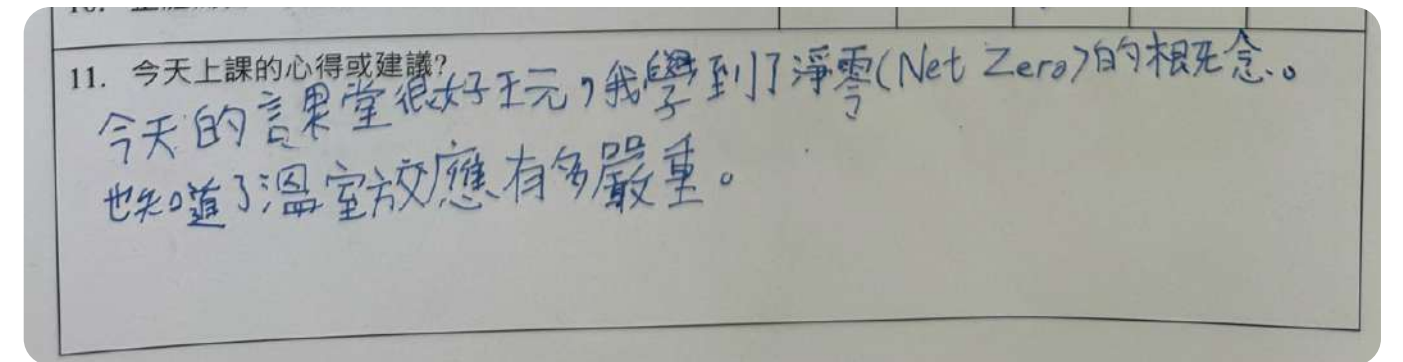 11. 今天上課的心得或建議?
今天的課堂很好玩,我學到了淨零(Net Zero)的概念。
也知道了溫室效應有多嚴重。